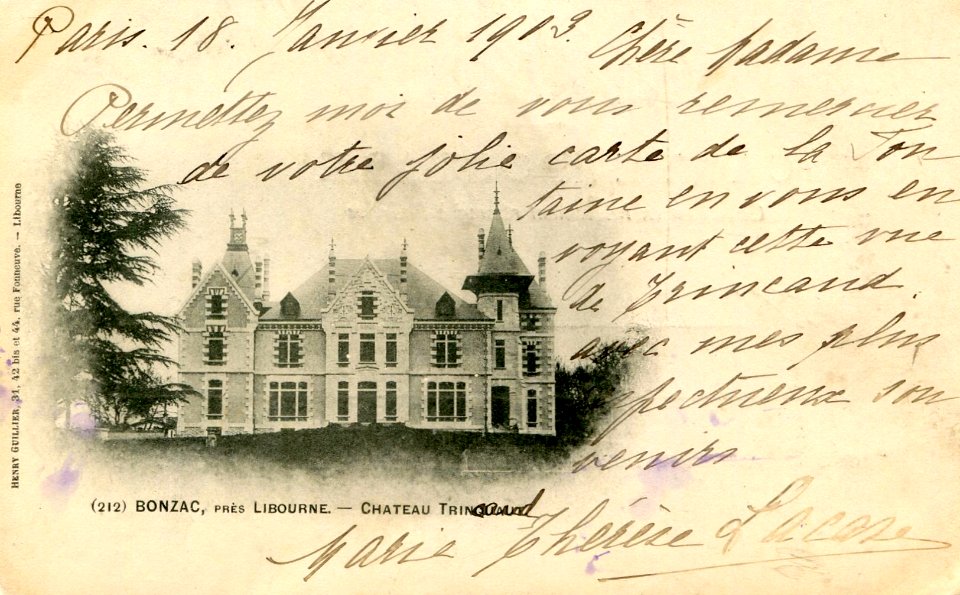 Paris. 18. Janvier 1903. Chère Madame
Permettez moi de vous remercier
de votre jolie carte de la Fon
taine en vous en
voyant cette vue
de Trincaud.
avec mes plus
spectueux sou
venirs
HENRY GUILLIER, 31, 42 bis et 44, rue Fonneuve. — Libourne
(212) BONZAC, PRÈS LIBOURNE. — CHATEAU TRINcaud
Marie Thérèse Lacaze